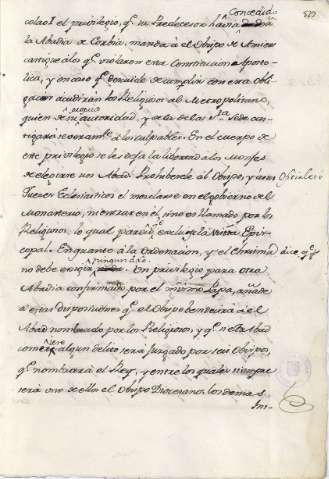 Concedido
colao I el privilegio, q.e su Predecesor havia
577
la Abadia de Corbia, manda à el Obispo de Amiens
castigue à los q.e violaren esta Constitucion Aposto-
lica, y en caso q.e se olvide de cumplir con esta obli-
gacion acudirán los Religiosos al Metropolitano,
quien de su propria autoridad, y de la de la S.ta Sede cas-
tigará severam.te à los culpables. En el cuerpo de
este privilegio se les dexa la libertad à los Monjes
de elegirse un Abad. Prohibese al Obispo, y à sus Oficiales ò
Jueces Eclesiasticos el mezclarse en el gobierno del
Monasterio, ni entrar en el, sino es llamado por los
Religiosos, lo qual parece excluye la visita Epis-
copal. En quanto à la ordenacion, y el Chrisma dice q.e
no debe exigir ninguno dro. Un privilegio para otra
Abadia confirmado por el mismo Papa, añade
à estas disposiciones q.e el Obispo bendecirá à el
Abad nombrado por los Religiosos, y q.e si esta Abad
cometiere algun delito será Juzgado por seis Obispos,
q.e nombrará el Rey, y entre los quales siempre
será uno de ellos el Obispo Diocesano. Los demas
Mo-